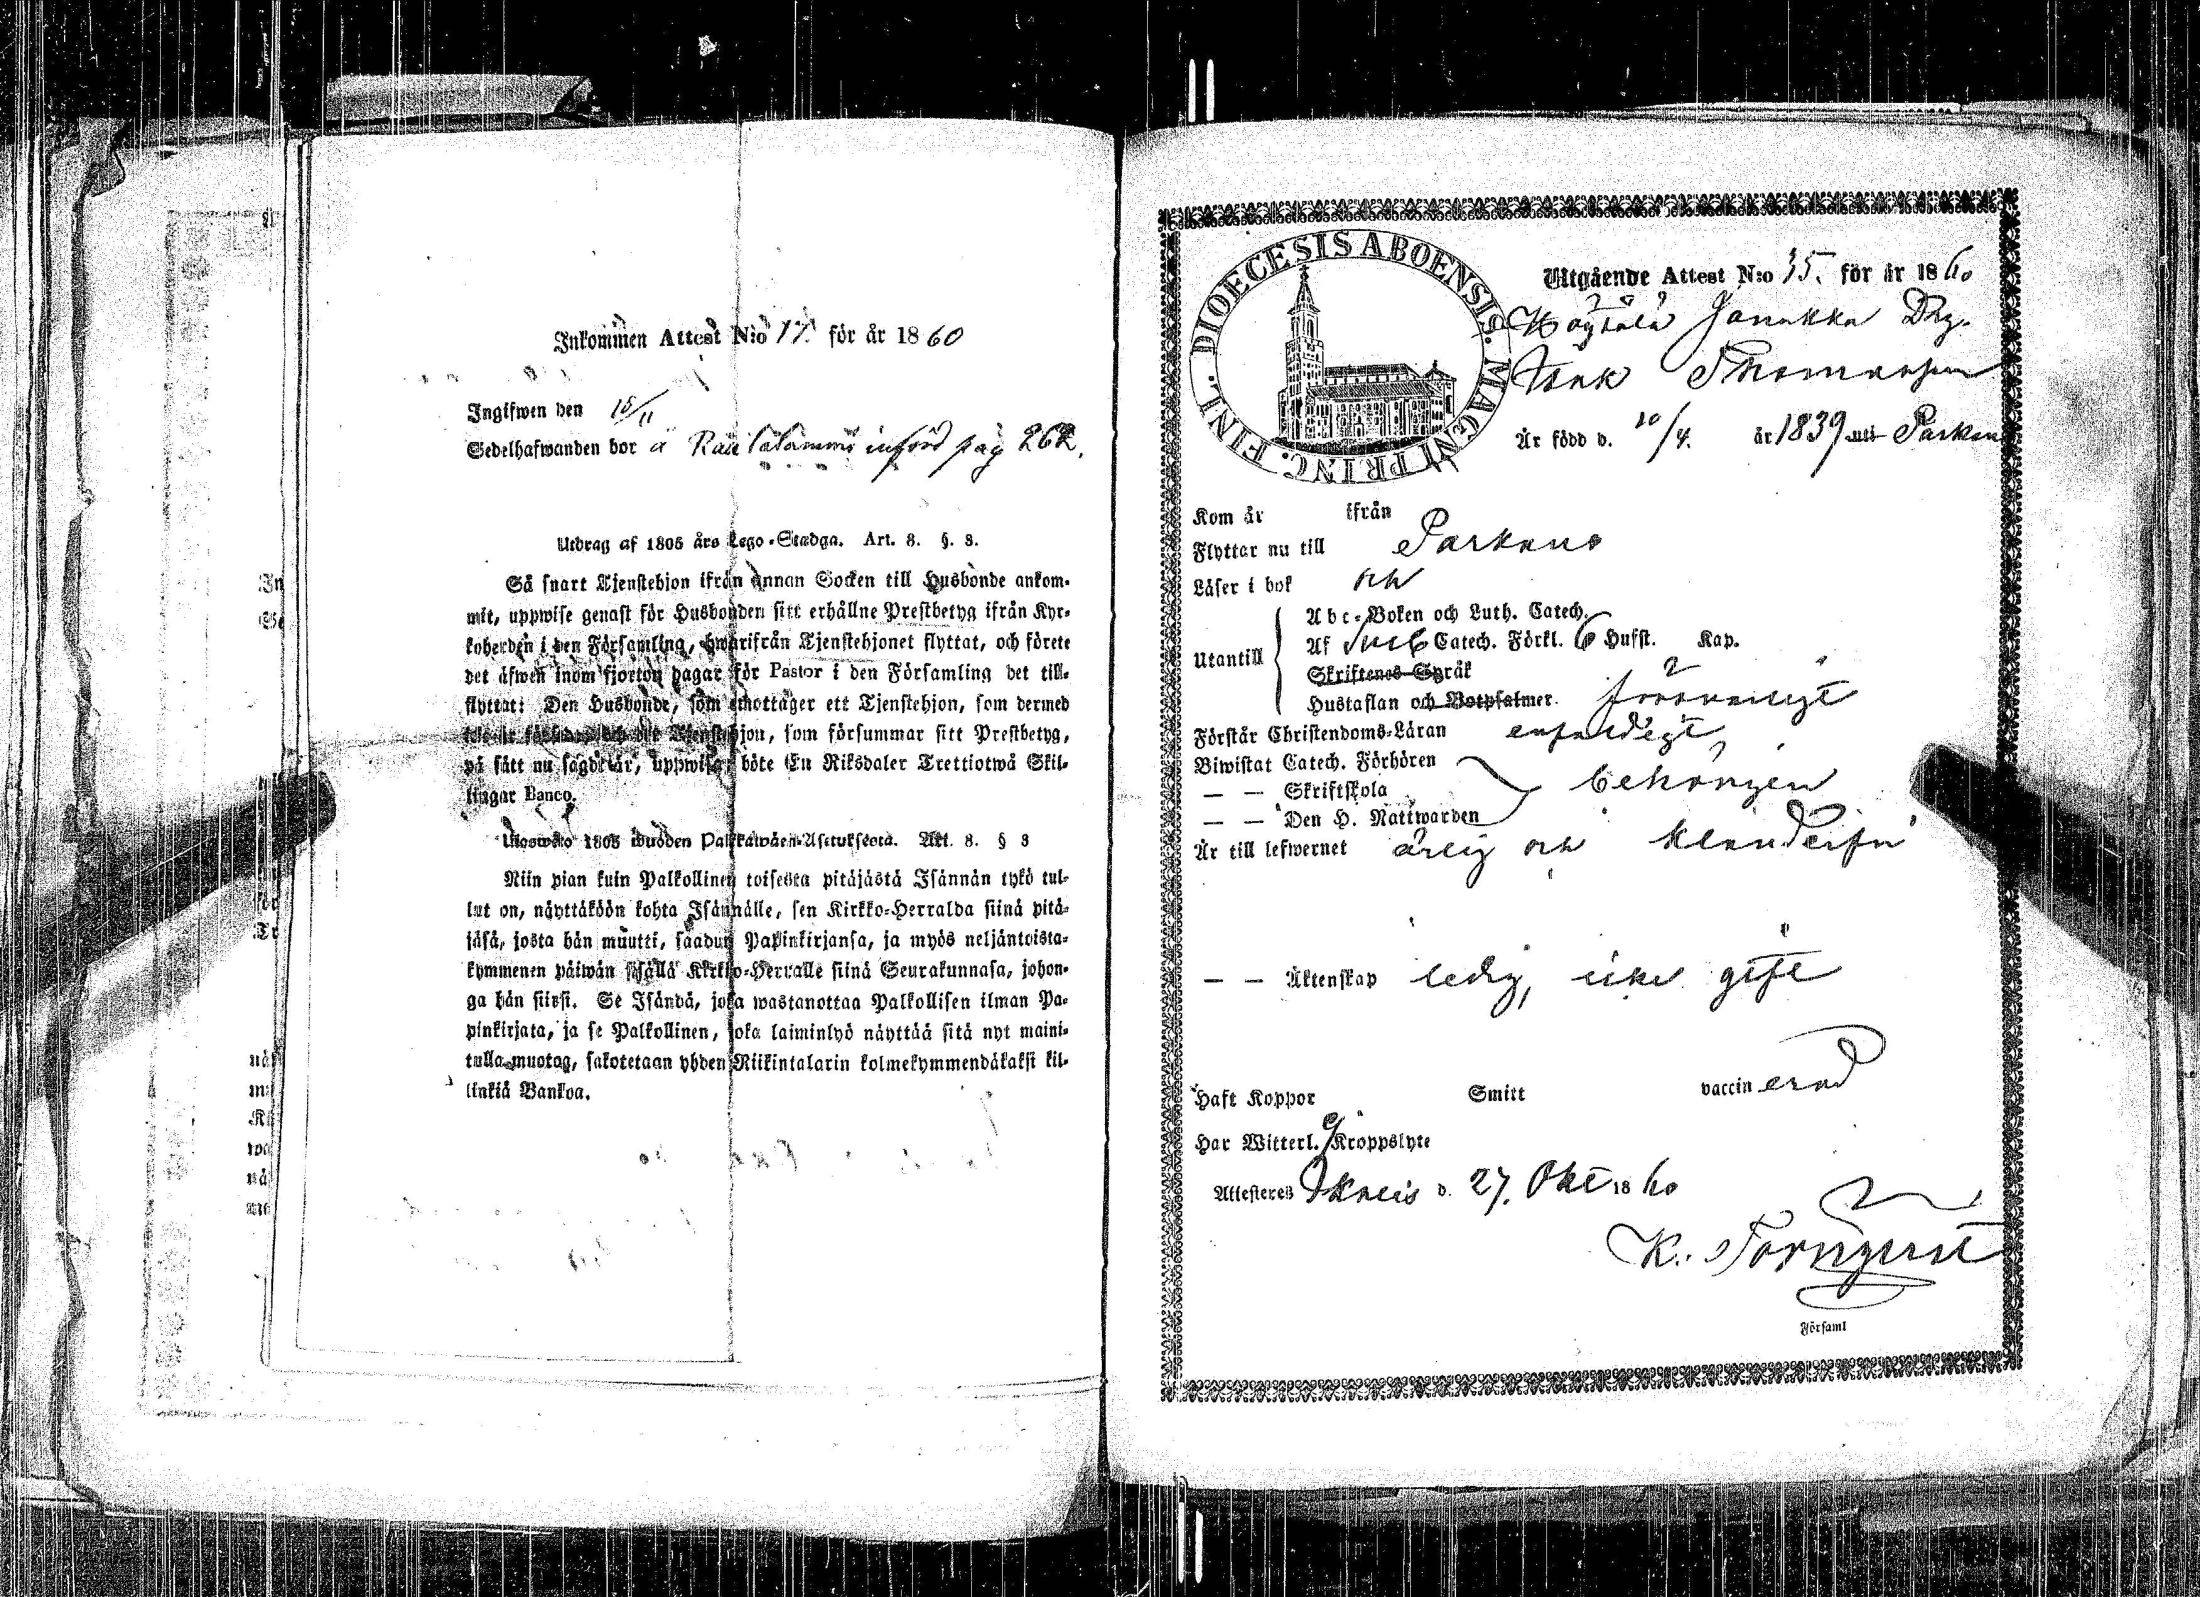 Inkommen Attest N:o 17. för år 1860
Ingifwen den 15/11
Sedelhafwanden bor å införd pag 262.
Utdrag af 1805 års Lego-Stadga. Art. 8. §. 8.
Så snart Tjenstehjon ifrån annan Socken till Husbonde ankom-
mit, uppwise genast för Husbonden sitt erhållne Prestbetyg ifrån Kyr-
koherden i den Församling, hwarifrån Tjenstehjonet flyttat, och förete
det äfwen inom fjorton dagar för Pastor i den Församling det till-
flyttat: Den Husbonde, som emottager ett Tjenstehjon, som dermed
Tjenstehjon, som försummar sitt Prestbetyg,
på sätt nu sagdt är, uppwisa, böte En Riksdaler Trettiotwå Skil-
lingar Banco.
Ulosweto 1805 wuoden Palkkawäen-Asetuksesta. Art. 8. § 8
Niin pian kuin Palkollinen toisesta pitäjästä Isännän tykö tul-
lut on, näyttäköön kohta Isännälle, sen Kirkko-Herralda siinä pitä-
jäsä, josta hän muutti, saadun Papinkirjansa, ja myös neljäntoista-
kymmenen päiwän sisällä Kirkko-Herralle siinä Seurakunnasa, johon-
ga hän siirsi. Se Isändä, joka wastanottaa Palkollisen ilman Pa-
pinkirjata, ja se Palkollinen, joka laiminlyö näyttää sitä nyt maini-
tulla muotoa, sakotetaan yhden Riikintalarin kolmekymmendäkaksi kil-
linkiä Bankoa.
DIOECESIS ABOENSIS. MAGNI PRINC. FINL.
Utgående Attest N:o 35. för år 1860
Janakka Drg.
Isak Thomasson
Är född d. 20/4. år 1839 uti Parkano
Kom år ifrån
Flyttar nu till Parkano
Läser i bok och
Utantill
Abc-Boken och Luth. Catech.
Af Catech. Förkl. Husst. Kap.
Skriftenes Språk
Hustaflan och Botpsalmer. försvarligt
Förstår Christendoms-Läran enfaldigt
Biwistat Catech. Förhören
— — Skriftskola behörigen
— — Den H. Nattwarden
Är till lefwernet ärlig och klanderfri
— — Äktenskap ledig, icke gift
Haft Koppor Smitt vaccinerad
Har Witterl. ej Kroppslyte
Attesteres Ikalis d. 27. Okt 1860
K. Törnqvist
Församl